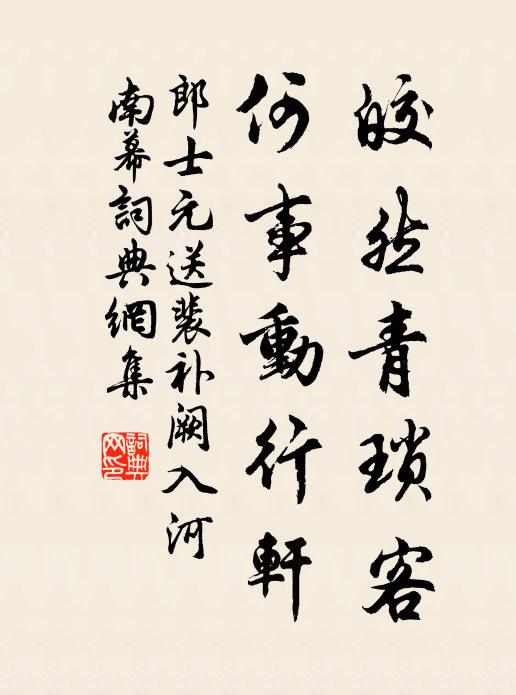 皎然青瑣客
何事動行軒
郎士元送裴补阙入河
南幕詞典網集
詞典网印